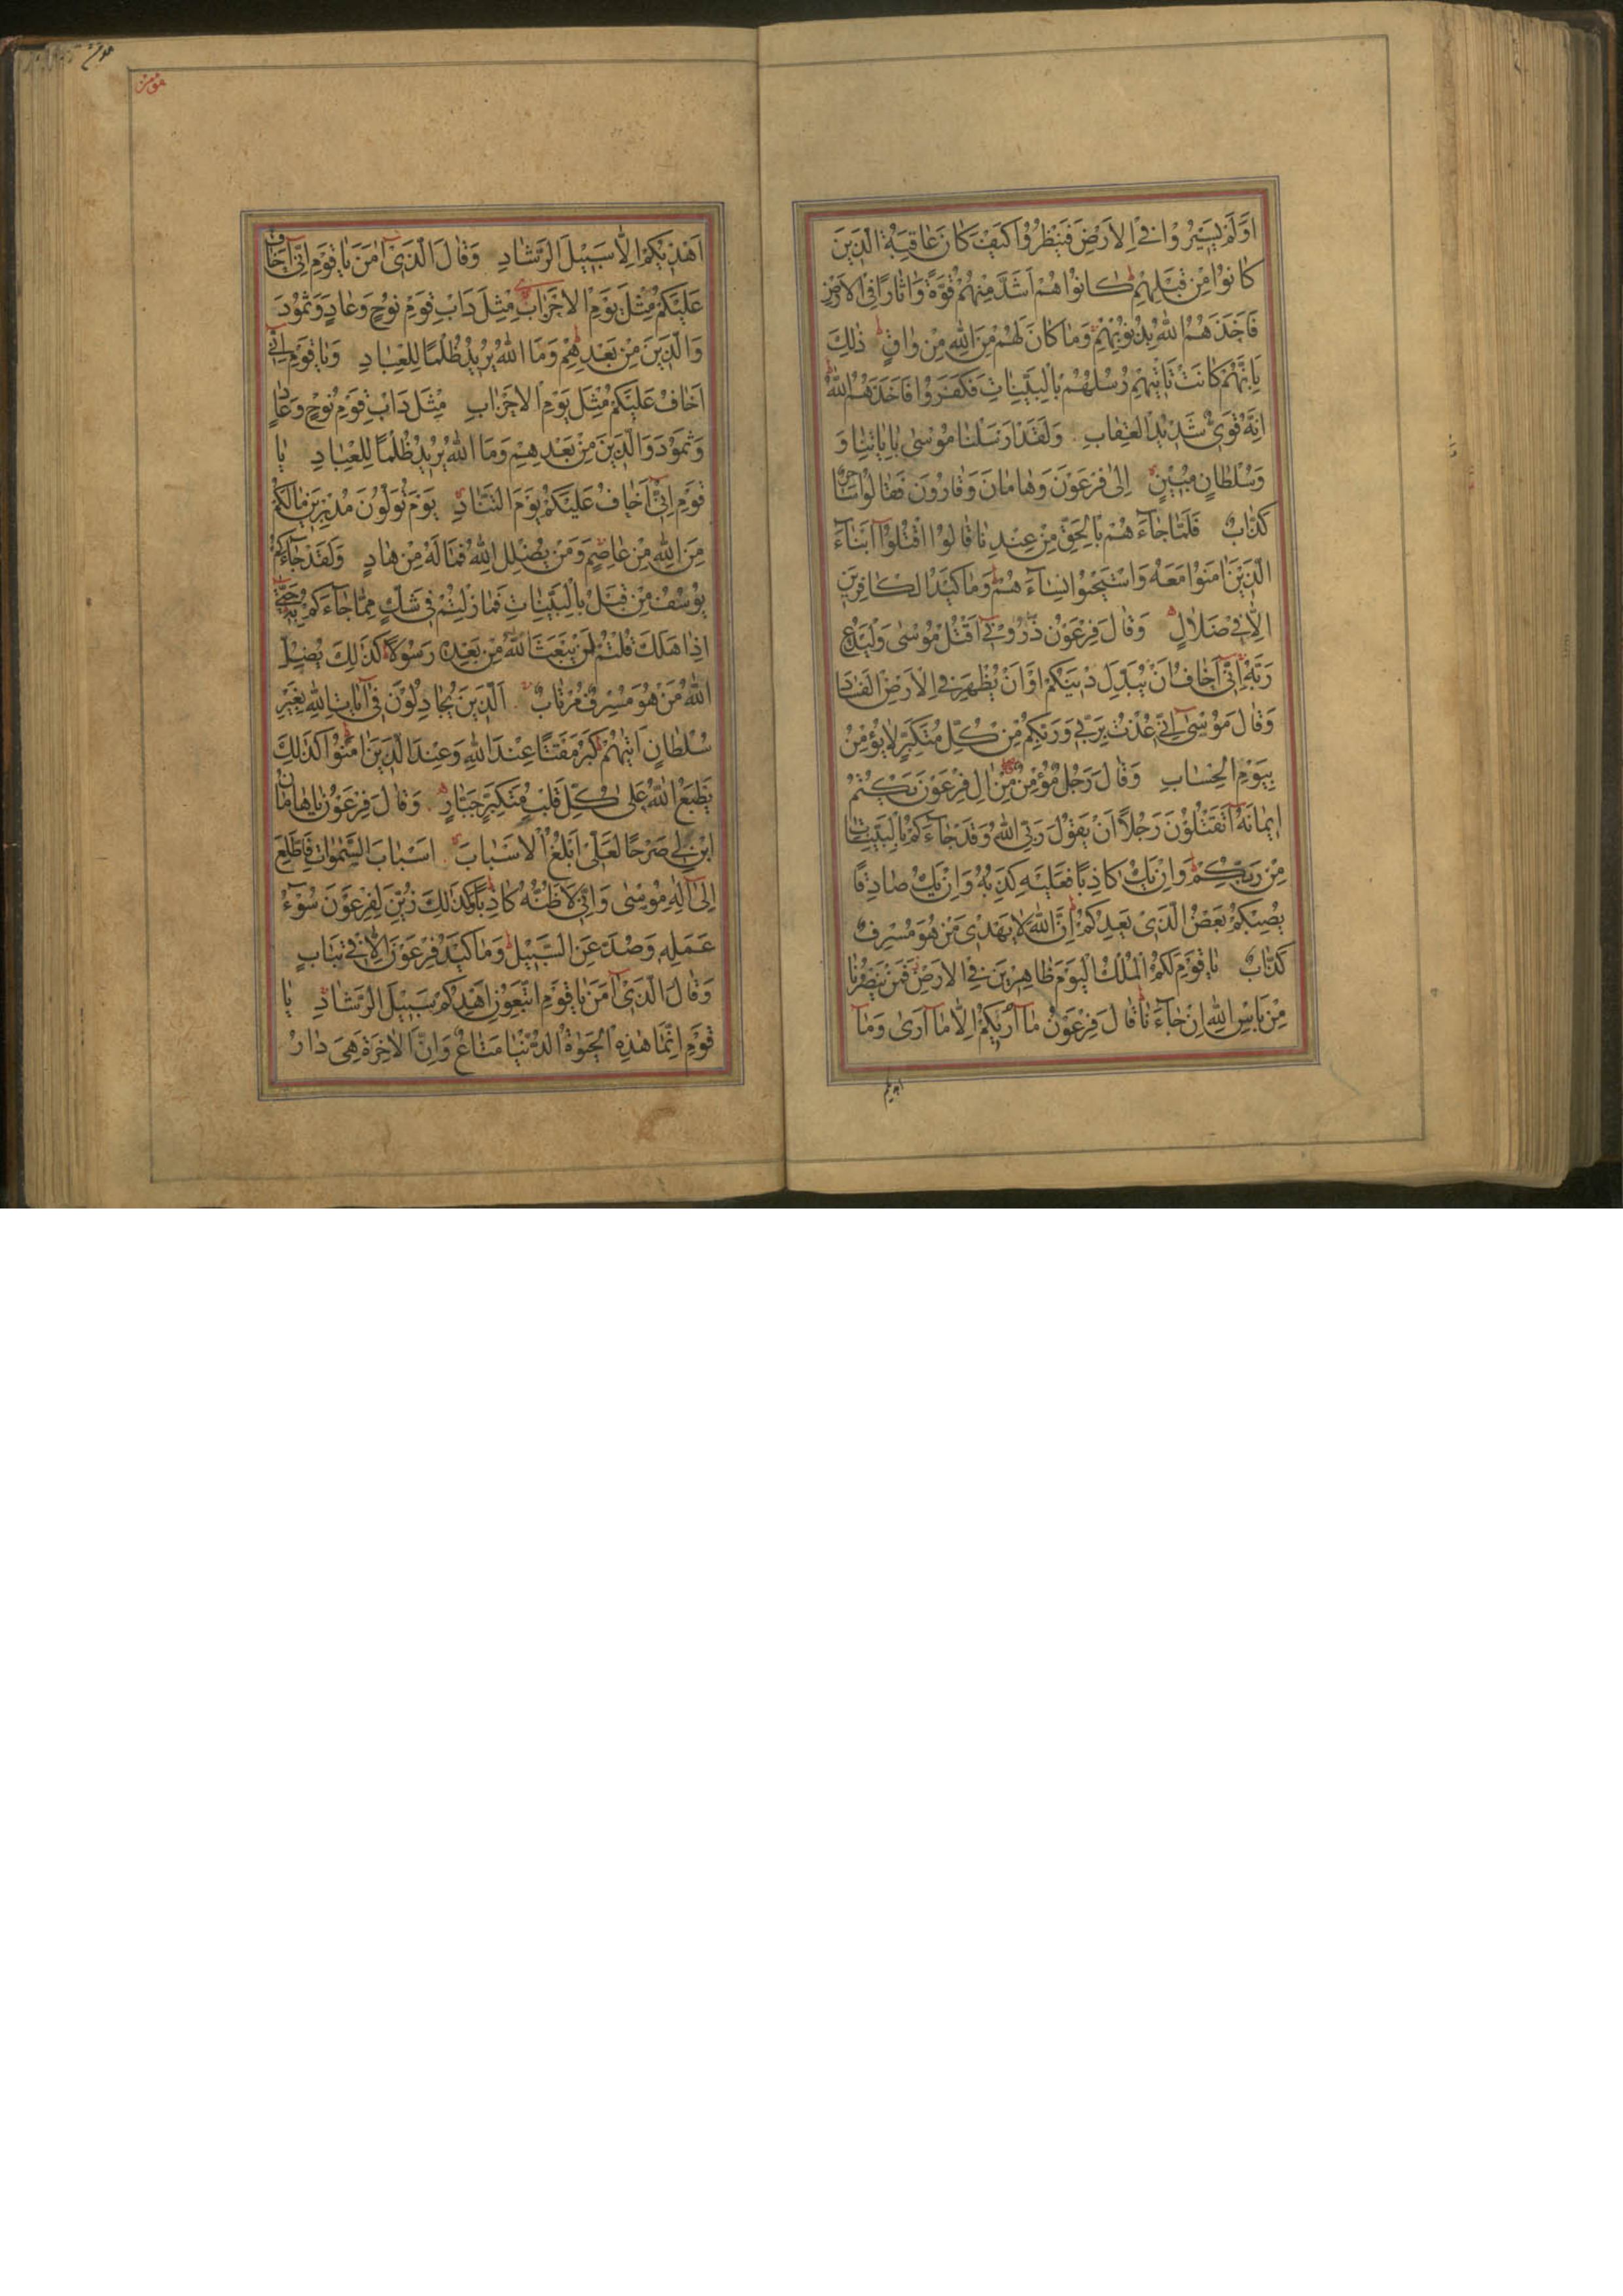 اَوَلَمْ يَسِيْرُوْا فِي الْاَرْضِ فَيَنْظُرُوْا كَيْفَ كَانَ عَاقِبَةُ الَّذِيْنَ
كَانُوْا مِنْ قَبْلِهِمْ كَانُوْا هُمْ اَشَدَّ مِنْهُمْ قُوَّةً وَاٰثَارًا فِي الْاَرْضِ
فَاَخَذَهُمُ اللّٰهُ بِذُنُوْبِهِمْ وَمَا كَانَ لَهُمْ مِنَ اللّٰهِ مِنْ وَاقٍ ذٰلِكَ
بِاَنَّهُمْ كَانَتْ تَاْتِيْهِمْ رُسُلُهُمْ بِالْبَيِّنَاتِ فَكَفَرُوْا فَاَخَذَهُمُ اللّٰهُ
اِنَّهُ قَوِيٌّ شَدِيْدُ الْعِقَابِ وَلَقَدْ اَرْسَلْنَا مُوْسٰى بِاٰيَاتِنَا وَ
وَسُلْطَانٍ مُبِيْنٍ اِلٰى فِرْعَوْنَ وَهَامَانَ وَقَارُوْنَ فَقَالُوْا سَاحِرٌ
كَذَّابٌ فَلَمَّا جَآءَهُمْ بِالْحَقِّ مِنْ عِنْدِنَا قَالُوا اقْتُلُوْا اَبْنَآءَ
الَّذِيْنَ اٰمَنُوْا مَعَهُ وَاسْتَحْيُوْا نِسَآءَهُمْ وَمَا كَيْدُ الْكَافِرِيْنَ
اِلَّا فِيْ ضَلَالٍ وَقَالَ فِرْعَوْنُ ذَرُوْنِيْ اَقْتُلْ مُوْسٰى وَلْيَدْعُ
رَبَّهُ اِنِّيْ اَخَافُ اَنْ يُبَدِّلَ دِيْنَكُمْ اَوْ اَنْ يُظْهِرَ فِي الْاَرْضِ الْفَسَادَ
وَقَالَ مُوْسٰى اِنِّيْ عُذْتُ بِرَبِّيْ وَرَبِّكُمْ مِنْ كُلِّ مُتَكَبِّرٍ لَا يُؤْمِنُ
بِيَوْمِ الْحِسَابِ وَقَالَ رَجُلٌ مُؤْمِنٌ مِنْ اٰلِ فِرْعَوْنَ يَكْتُمُ
اِيْمَانَهُ اَتَقْتُلُوْنَ رَجُلًا اَنْ يَقُوْلَ رَبِّيَ اللّٰهُ وَقَدْ جَآءَكُمْ بِالْبَيِّنَاتِ
مِنْ رَبِّكُمْ وَاِنْ يَكُ كَاذِبًا فَعَلَيْهِ كَذِبُهُ وَاِنْ يَكُ صَادِقًا
يُصِبْكُمْ بَعْضُ الَّذِيْ يَعِدُكُمْ اِنَّ اللّٰهَ لَا يَهْدِيْ مَنْ هُوَ مُسْرِفٌ
كَذَّابٌ يَا قَوْمِ لَكُمُ الْمُلْكُ الْيَوْمَ ظَاهِرِيْنَ فِي الْاَرْضِ فَمَنْ يَنْصُرُنَا
مِنْ بَاْسِ اللّٰهِ اِنْ جَآءَنَا قَالَ فِرْعَوْنُ مَآ اُرِيْكُمْ اِلَّا مَآ اَرٰى وَمَآ
اهديكم
مؤمن
اَهْدِيْكُمْ اِلَّا سَبِيْلَ الرَّشَادِ وَقَالَ الَّذِيْ اٰمَنَ يَا قَوْمِ اِنِّيْ اَخَافُ
عَلَيْكُمْ مِثْلَ يَوْمِ الْاَحْزَابِ مِثْلَ دَاْبِ قَوْمِ نُوْحٍ وَعَادٍ وَثَمُوْدَ
وَالَّذِيْنَ مِنْ بَعْدِهِمْ وَمَا اللّٰهُ يُرِيْدُ ظُلْمًا لِلْعِبَادِ وَيَا قَوْمِ اِنِّيْ
اَخَافُ عَلَيْكُمْ مِثْلَ يَوْمِ الْاَحْزَابِ مِثْلَ دَاْبِ قَوْمِ نُوْحٍ وَعَادٍ
وَثَمُوْدَ وَالَّذِيْنَ مِنْ بَعْدِهِمْ وَمَا اللّٰهُ يُرِيْدُ ظُلْمًا لِلْعِبَادِ يَا
قَوْمِ اِنِّيْ اَخَافُ عَلَيْكُمْ يَوْمَ التَّنَادِ يَوْمَ تُوَلُّوْنَ مُدْبِرِيْنَ مَالَكُمْ
مِنَ اللّٰهِ مِنْ عَاصِمٍ وَمَنْ يُضْلِلِ اللّٰهُ فَمَا لَهُ مِنْ هَادٍ وَلَقَدْ جَآءَكُمْ
يُوْسُفُ مِنْ قَبْلُ بِالْبَيِّنَاتِ فَمَا زِلْتُمْ فِيْ شَكٍّ مِمَّا جَآءَكُمْ بِهِ حَتّٰى
اِذَا هَلَكَ قُلْتُمْ لَنْ يَبْعَثَ اللّٰهُ مِنْ بَعْدِهِ رَسُوْلًا كَذٰلِكَ يُضِلُّ
اللّٰهُ مَنْ هُوَ مُسْرِفٌ مُرْتَابٌ اَلَّذِيْنَ يُجَادِلُوْنَ فِيْ اٰيَاتِ اللّٰهِ بِغَيْرِ
سُلْطَانٍ اَتٰيهُمْ كَبُرَ مَقْتًا عِنْدَ اللّٰهِ وَعِنْدَ الَّذِيْنَ اٰمَنُوْا كَذٰلِكَ
يَطْبَعُ اللّٰهُ عَلٰى كُلِّ قَلْبِ مُتَكَبِّرٍ جَبَّارٍ وَقَالَ فِرْعَوْنُ يَا هَامَانُ
ابْنِ لِيْ صَرْحًا لَعَلِّيْ اَبْلُغُ الْاَسْبَابَ اَسْبَابَ السَّمٰوَاتِ فَاَطَّلِعَ
اِلٰى اِلٰهِ مُوْسٰى وَاِنِّيْ لَاَظُنُّهُ كَاذِبًا وَكَذٰلِكَ زُيِّنَ لِفِرْعَوْنَ سُوْٓءُ
عَمَلِهِ وَصُدَّ عَنِ السَّبِيْلِ وَمَا كَيْدُ فِرْعَوْنَ اِلَّا فِيْ تَبَابٍ
وَقَالَ الَّذِيْ اٰمَنَ يَا قَوْمِ اتَّبِعُوْنِ اَهْدِكُمْ سَبِيْلَ الرَّشَادِ يَا
قَوْمِ اِنَّمَا هٰذِهِ الْحَيٰوةُ الدُّنْيَا مَتَاعٌ وَاِنَّ الْاٰخِرَةَ هِيَ دَارُ